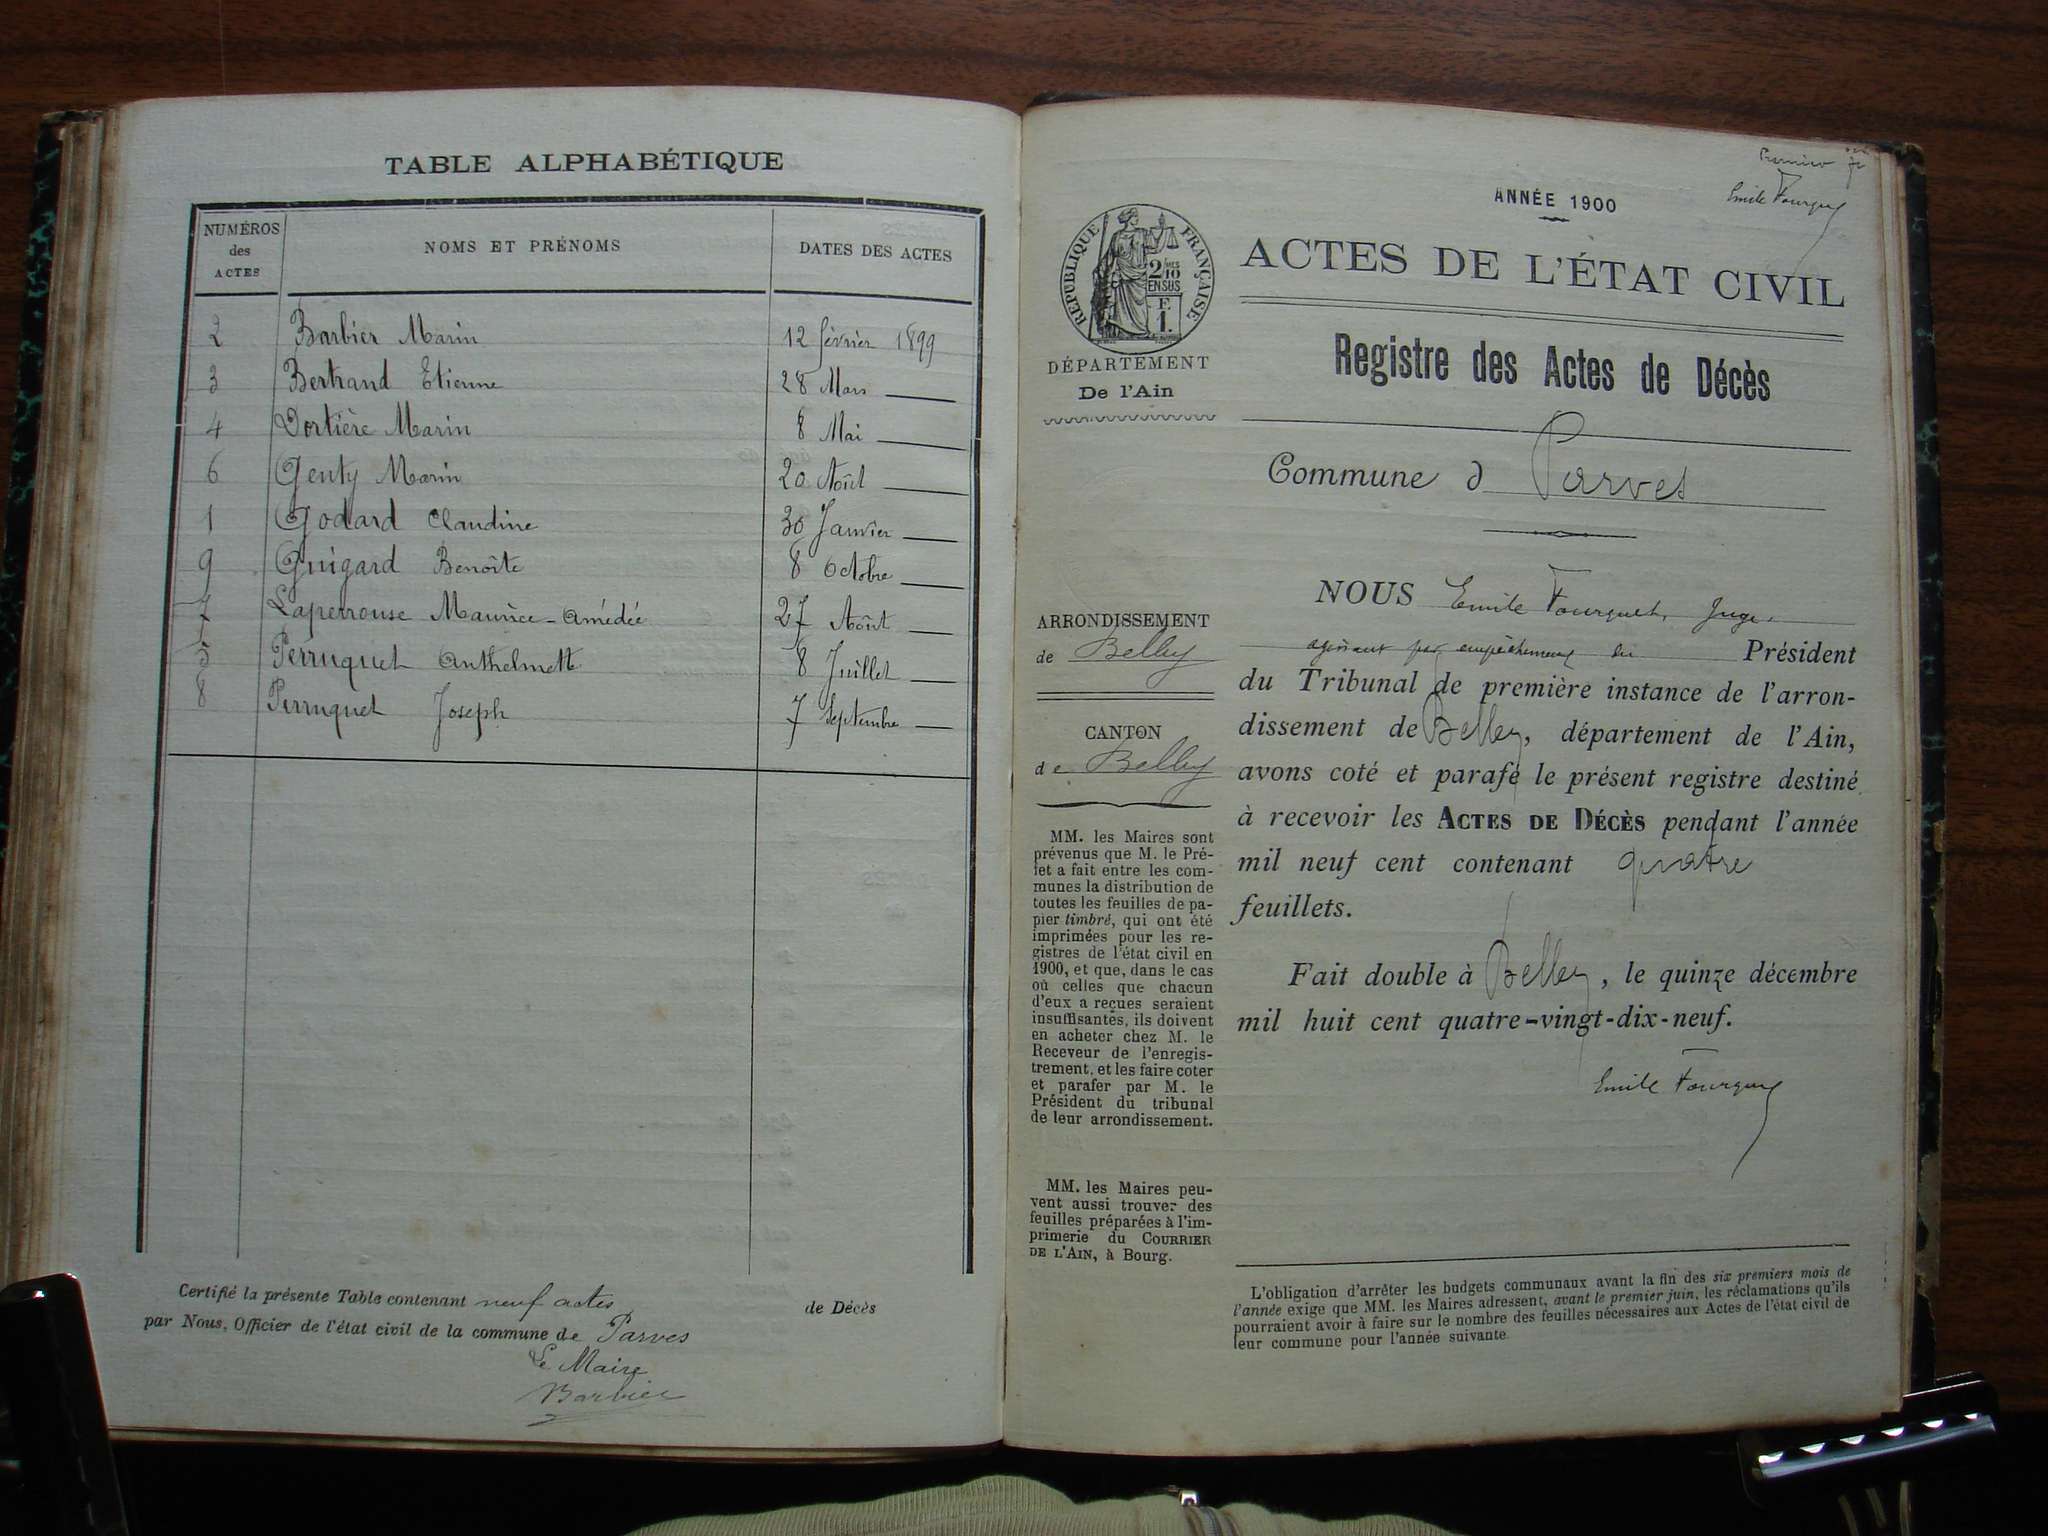 TABLE ALPHABÉTIQUE
NUMÉROS des ACTES NOMS ET PRÉNOMS DATES DES ACTES
2 Barbier Marin 12 février 1899
3 Bertrand Etienne 28 Mars
4 Dortière Marin 8 Mai
6 Genty Marin 20 Août
1 Godard Claudine 30 Janvier
9 Guigard Benoîte 8 Octobre
7 Laperrouse Maurice-Amédée 27 Août
5 Perruquet Anthelmette 8 Juillet
8 Perruquet Joseph 7 Septembre
Certifié la présente Table contenant neuf actes de Décès
par Nous, Officier de l'état civil de la commune de Parves
Le Maire
Barbier
Premier
Emile Fourquet
ANNÉE 1900
RÉPUBLIQUE FRANÇAISE
2/10
EN SUS
F
1.
ACTES DE L'ÉTAT CIVIL
DÉPARTEMENT
De l'Ain
Registre des Actes de Décès
Commune d Parves
NOUS Emile Fourquet, Juge,
agissant par empêchement du Président
du Tribunal de première instance de l'arron-
dissement de Belley, département de l'Ain,
avons coté et parafé le présent registre destiné
à recevoir les ACTES DE DÉCÈS pendant l'année
mil neuf cent contenant quatre
feuillets.
Fait double à Belley, le quinze décembre
mil huit cent quatre-vingt-dix-neuf.
Emile Fourquet
ARRONDISSEMENT
de Belley
CANTON
de Belley
MM. les Maires sont
prévenus que M. le Pré-
fet a fait entre les com-
munes la distribution de
toutes les feuilles de pa-
pier timbré, qui ont été
imprimées pour les re-
gistres de l'état civil en
1900, et que, dans le cas
où celles que chacun
d'eux a reçues seraient
insuffisantes, ils doivent
en acheter chez M. le
Receveur de l'enregis-
trement, et les faire coter
et parafer par M. le
Président du tribunal
de leur arrondissement.
MM. les Maires peu-
vent aussi trouver des
feuilles préparées à l'im-
primerie du COURRIER
DE L'AIN, à Bourg.
L'obligation d'arrêter les budgets communaux avant la fin des six premiers mois de
l'année exige que MM. les Maires adressent, avant le premier juin, les réclamations qu'ils
pourraient avoir à faire sur le nombre des feuilles nécessaires aux Actes de l'état civil de
leur commune pour l'année suivante.